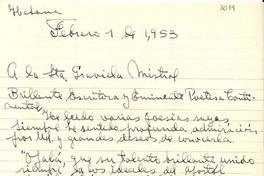 Habana
Febrero 1 de 1,953
A la Sta. Graviela Mistral
Brillante Escritora y Eminente Poetisa Conti-
nental
He leido varias poesias suyas
siempre he sentido profunda admiración
por Ud y grandes deseos de conocerla.
que su talento brillante unido
siempre a los ideales del Apostol